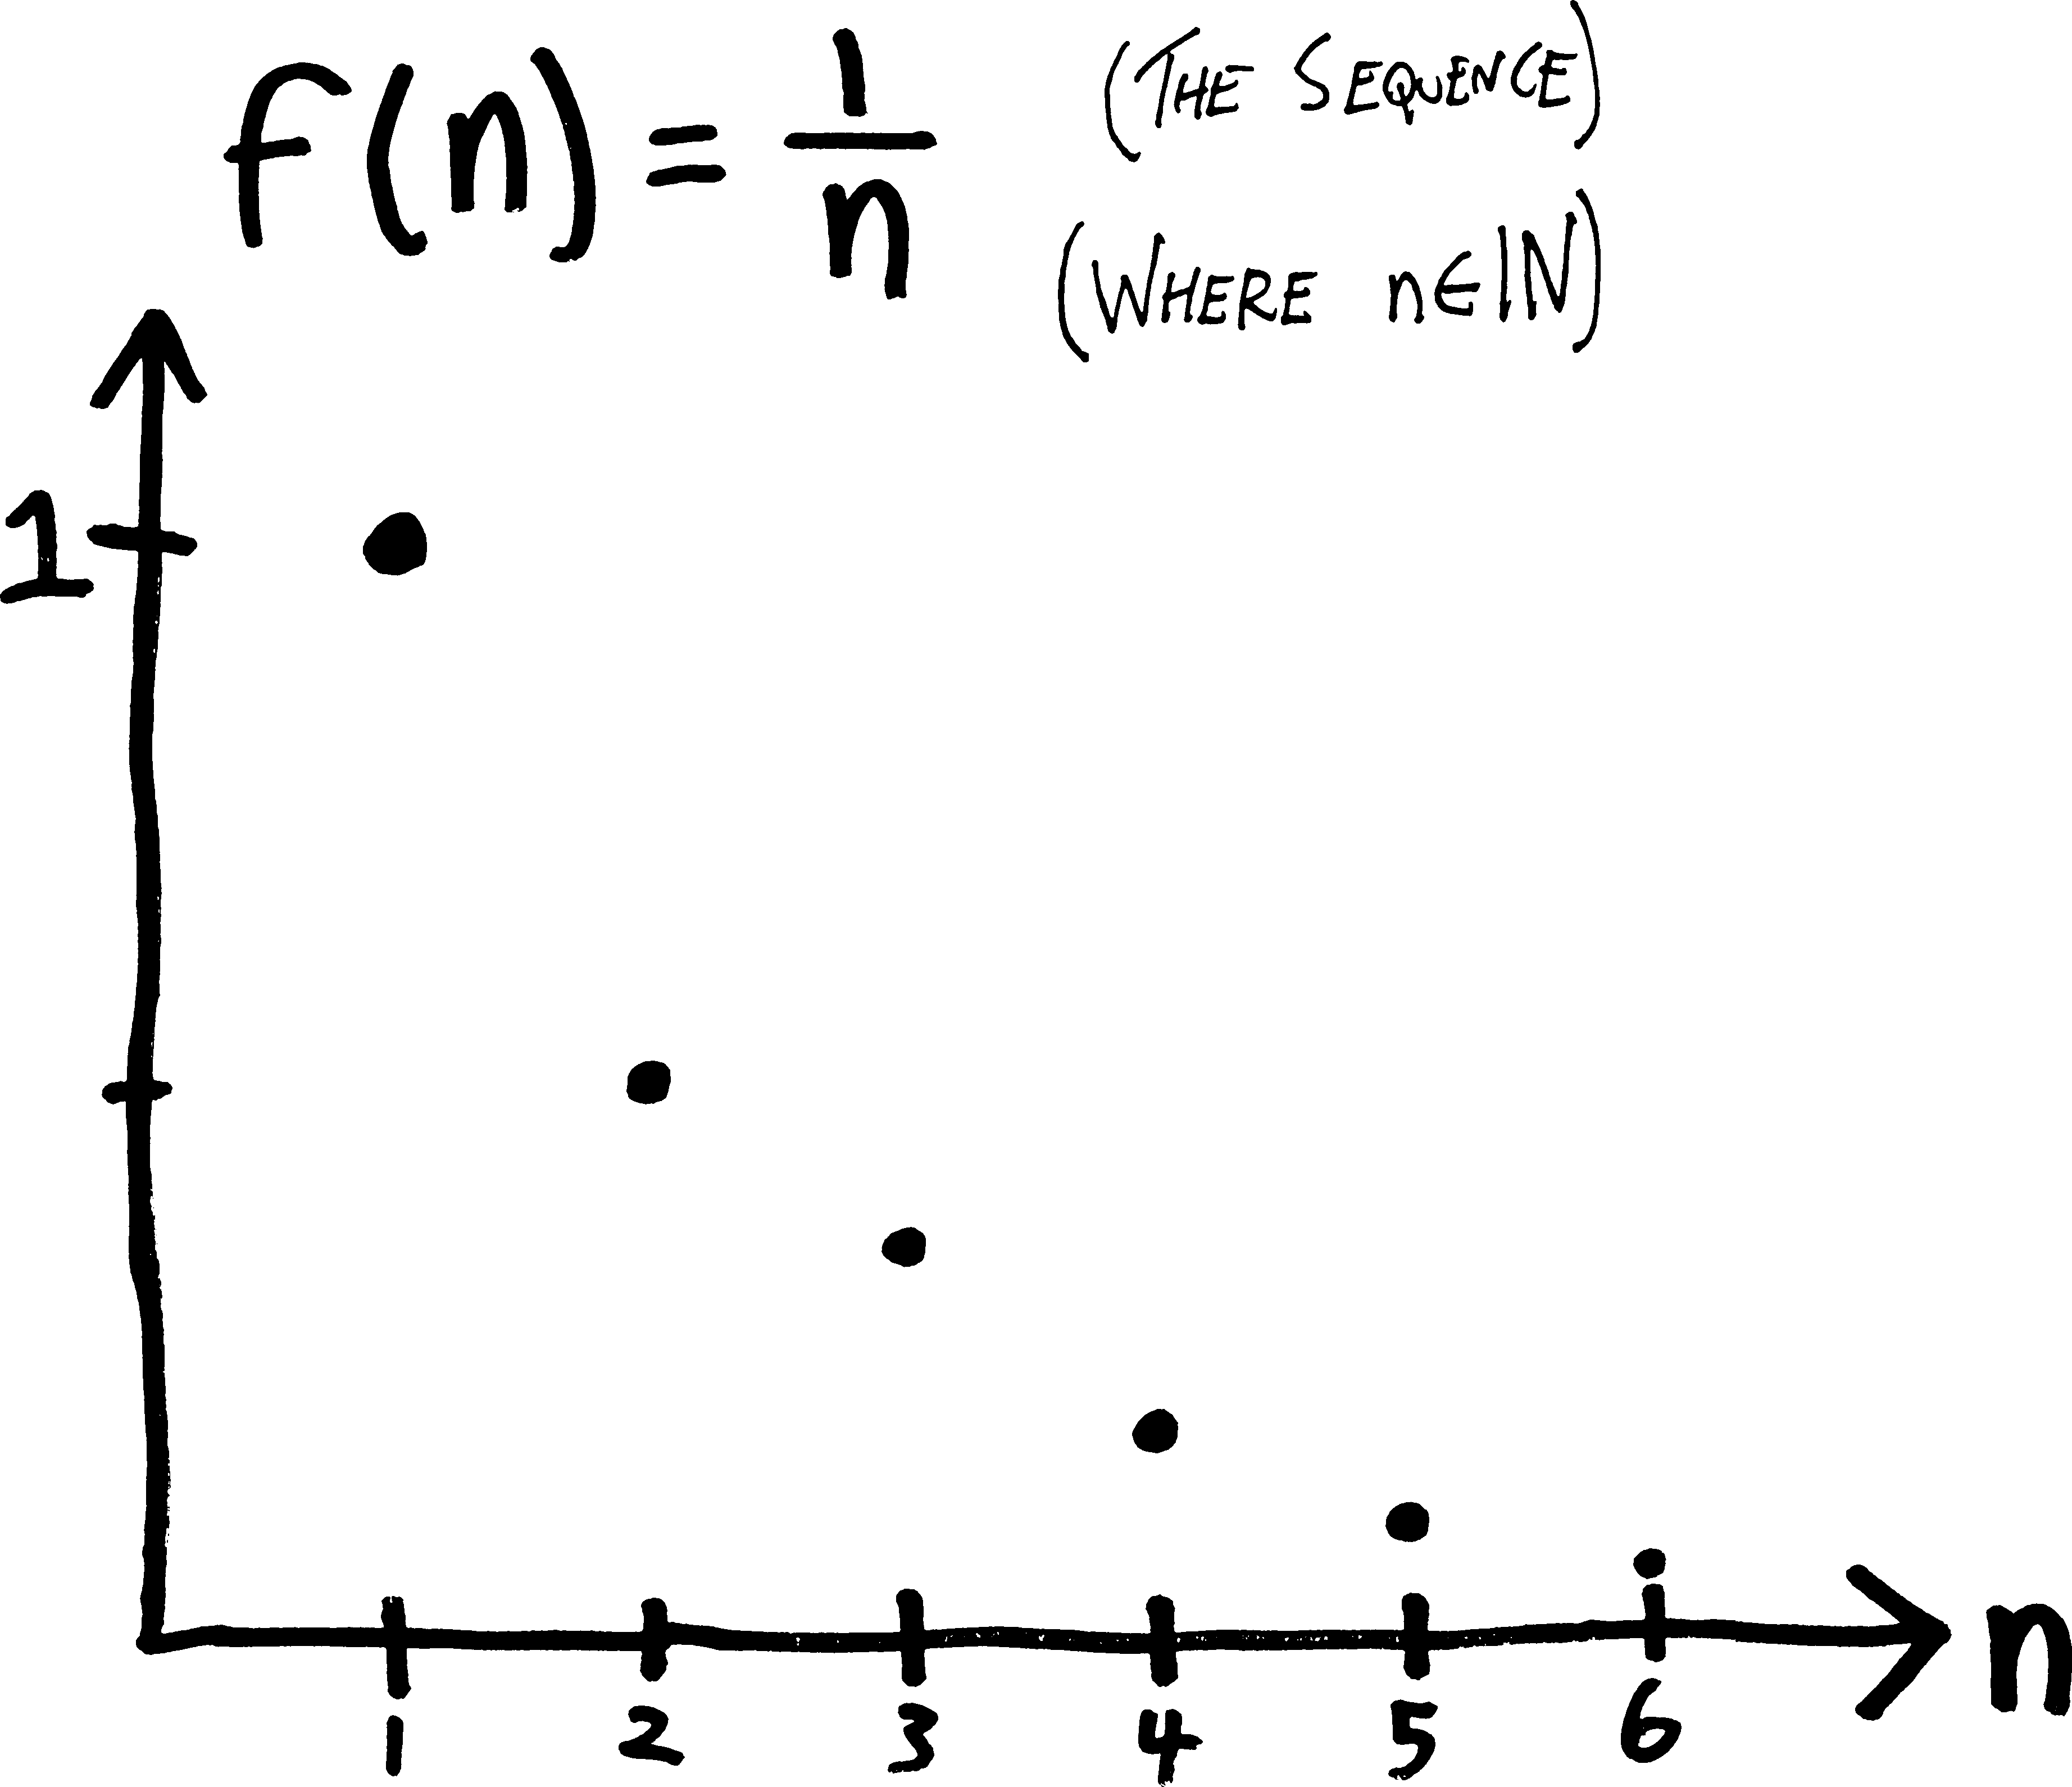 f(n) = 1/n (THE SEQUENCE)
(WHERE n∈ℕ)
1
1 2 3 4 5 6
n